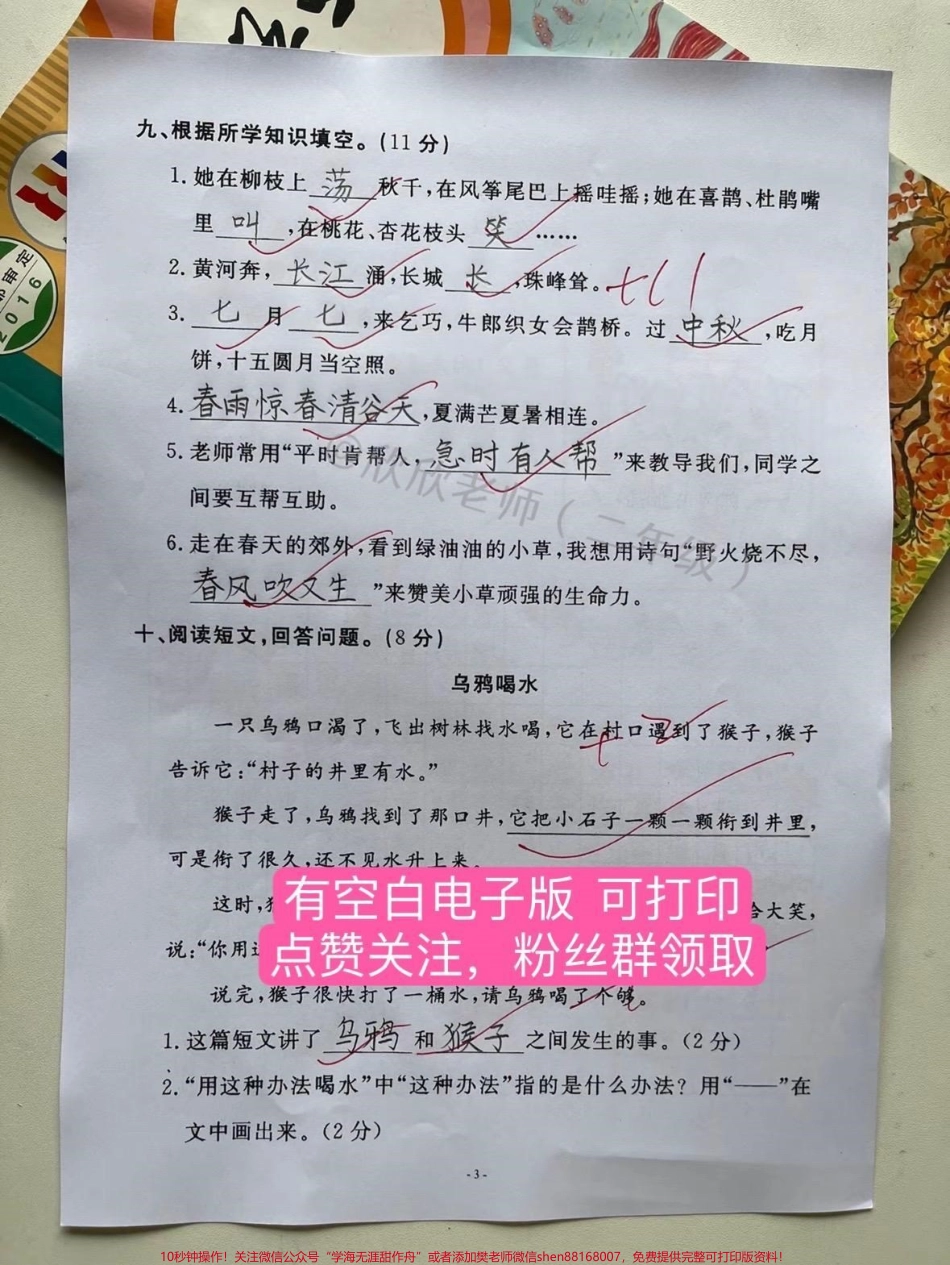 审定
2016
九、根据所学知识填空。(11分)
1. 她在柳枝上 荡 秋千,在风筝尾巴上摇哇摇;她在喜鹊、杜鹃嘴
里 叫 ,在桃花、杏花枝头 笑 ……
2. 黄河奔, 长江 涌,长城 长 ,珠峰耸。 +11
3. 七 月 七 ,来乞巧,牛郎织女会鹊桥。过 中秋 ,吃月
饼,十五圆月当空照。
4. 春雨惊春清谷天 ,夏满芒夏暑相连。
5. 老师常用“平时肯帮人, 急时有人帮 ”来教导我们,同学之
间要互帮互助。
@欣欣老师(二年级)
6. 走在春天的郊外,看到绿油油的小草,我想用诗句“野火烧不尽,
春风吹又生 ”来赞美小草顽强的生命力。
十、阅读短文,回答问题。(8分)
乌鸦喝水
一只乌鸦口渴了,飞出树林找水喝,它在村口遇到了猴子,猴子
告诉它:“村子的井里有水。”
猴子走了,乌鸦找到了那口井,它把小石子一颗一颗衔到井里,
可是衔了很久,还不见水升上来。
这时, 大笑,
说:“你用
有空白电子版 可打印
点赞关注,粉丝群领取
说完,猴子很快打了一桶水,请乌鸦喝了个够。
1. 这篇短文讲了 乌鸦 和 猴子 之间发生的事。(2分)
2. “用这种办法喝水”中“这种办法”指的是什么办法?用“——”在
文中画出来。(2分)
- 3 -
10秒钟操作!关注微信公众号“学海无涯甜作舟”或者添加樊老师微信shen88168007,免费提供完整可打印版资料!